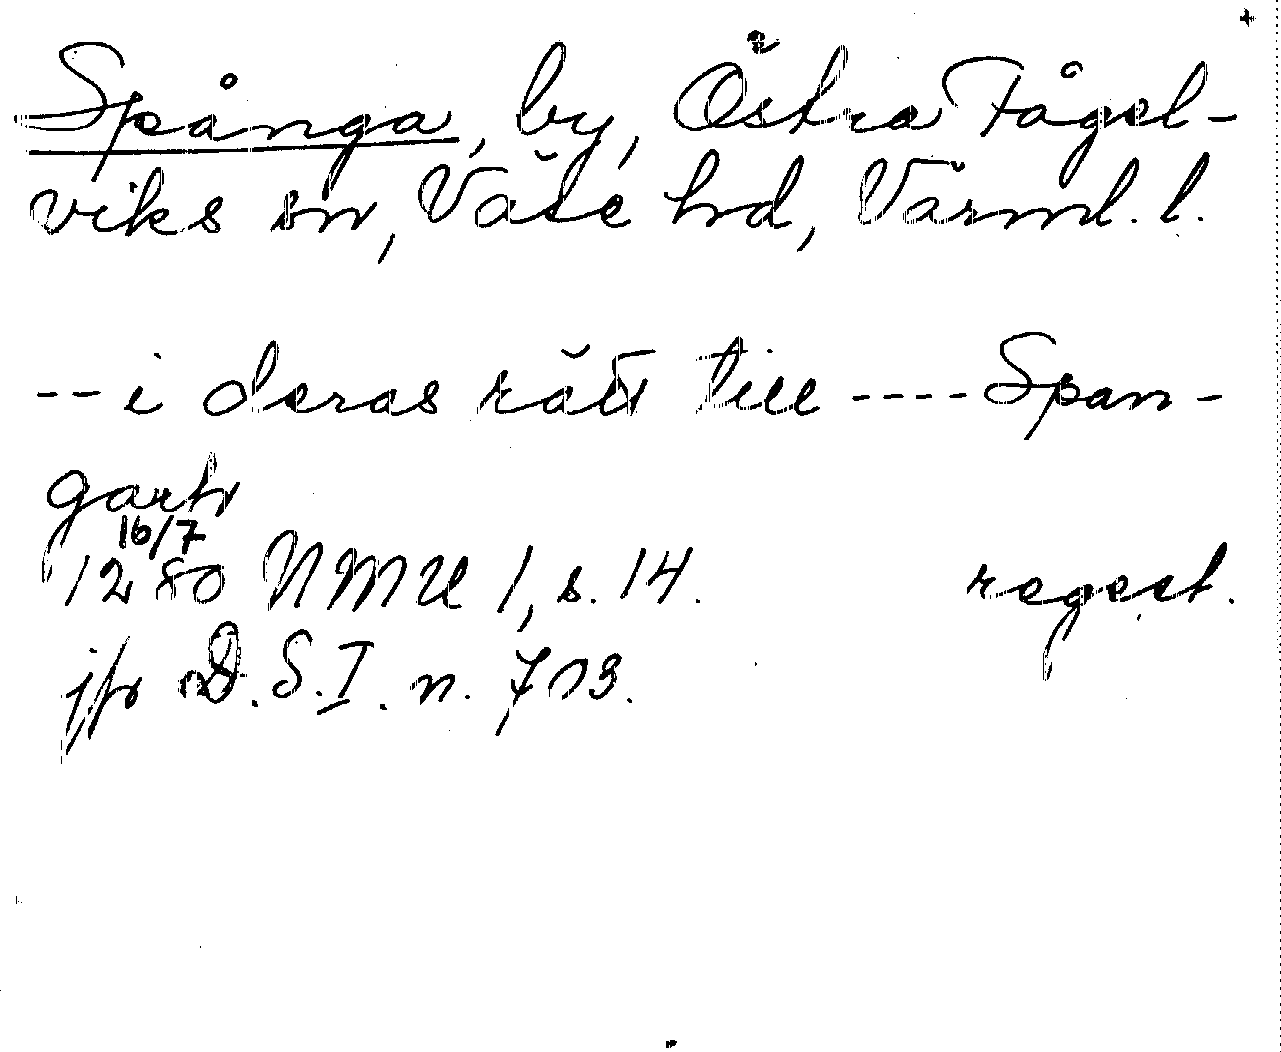 +
Spånga, by, Östra Fågel-
viks sn, Väse hd, Värml. l.
-- i deras rätt till ---- Span-
garh
16/7
1280 NMU 1, s. 14. regest.
jfr D.S.I. n. 703.